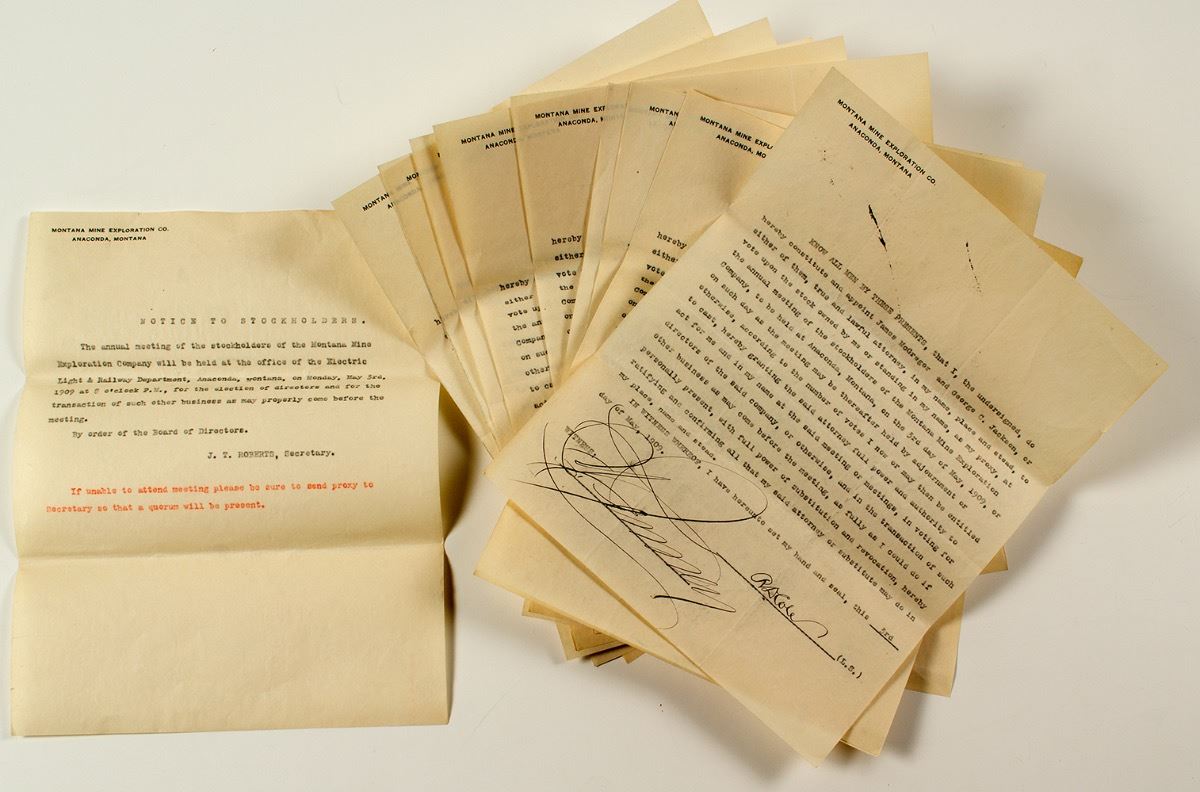 MONTANA MINE EXPLORATION CO.
ANACONDA, MONTANA
NOTICE TO STOCKHOLDERS.
The annual meeting of the stockholders of the Montana Mine
Exploration Company will be held at the office of the Electric
Light & Railway Department, Anaconda, Montana, on Monday, May 3rd,
1909 at 8 o'clock P.M., for the election of directors and for the
transaction of such other business as may properly come before the
meeting.
By order of the Board of Directors.
J. T. ROBERTS, Secretary.
If unable to attend meeting please be sure to send proxy to
Secretary so that a quorum will be present.
MONTANA
MO
MONTANA MINE
ANACOND
MONTANA MINE EXP
ANACONDA, M
MONTAN
A
MONTANA MINE EXP
ANACONDA, MO
hereby
either
vote up
the an
Compan
on su
other
to ca
hereby
either
vote
the
Com
on
hereby
eithe
vote
the
Com
on
MONTANA MINE EXPLORATION CO.
ANACONDA, MONTANA
KNOW ALL MEN BY THESE PRESENTS, that I, the undersigned, do
hereby constitute and appoint James and George C. Jackson, or
either of them, true and lawful attorney, in my name, place and stead, to
vote upon the stock owned by me or standing in my name, as my proxy, at
the annual meeting of the stockholders of the Montana Mine Exploration
Company, to be held at Anaconda, Montana, on the 3rd day of May, 1909, or
on such day as the meeting may be thereafter held by adjournment or
otherwise, according to the number of votes I now or may then be entitled
to cast, hereby granting the said attorney full power and authority to
act for me and in my name at the said meeting or meetings, in voting for
directors of the said company, or otherwise, and in the transaction of such
other business as may come before the meeting, as fully as I could do if
personally present, with full power of substitution and revocation, hereby
ratifying and confirming all that my said attorney or substitute may do in
my place, name and stead.
IN WITNESS WHEREOF, I have hereunto set my hand and seal, this 3rd
day of May, 1909.
WITNESS.
Cole
(L.S.)